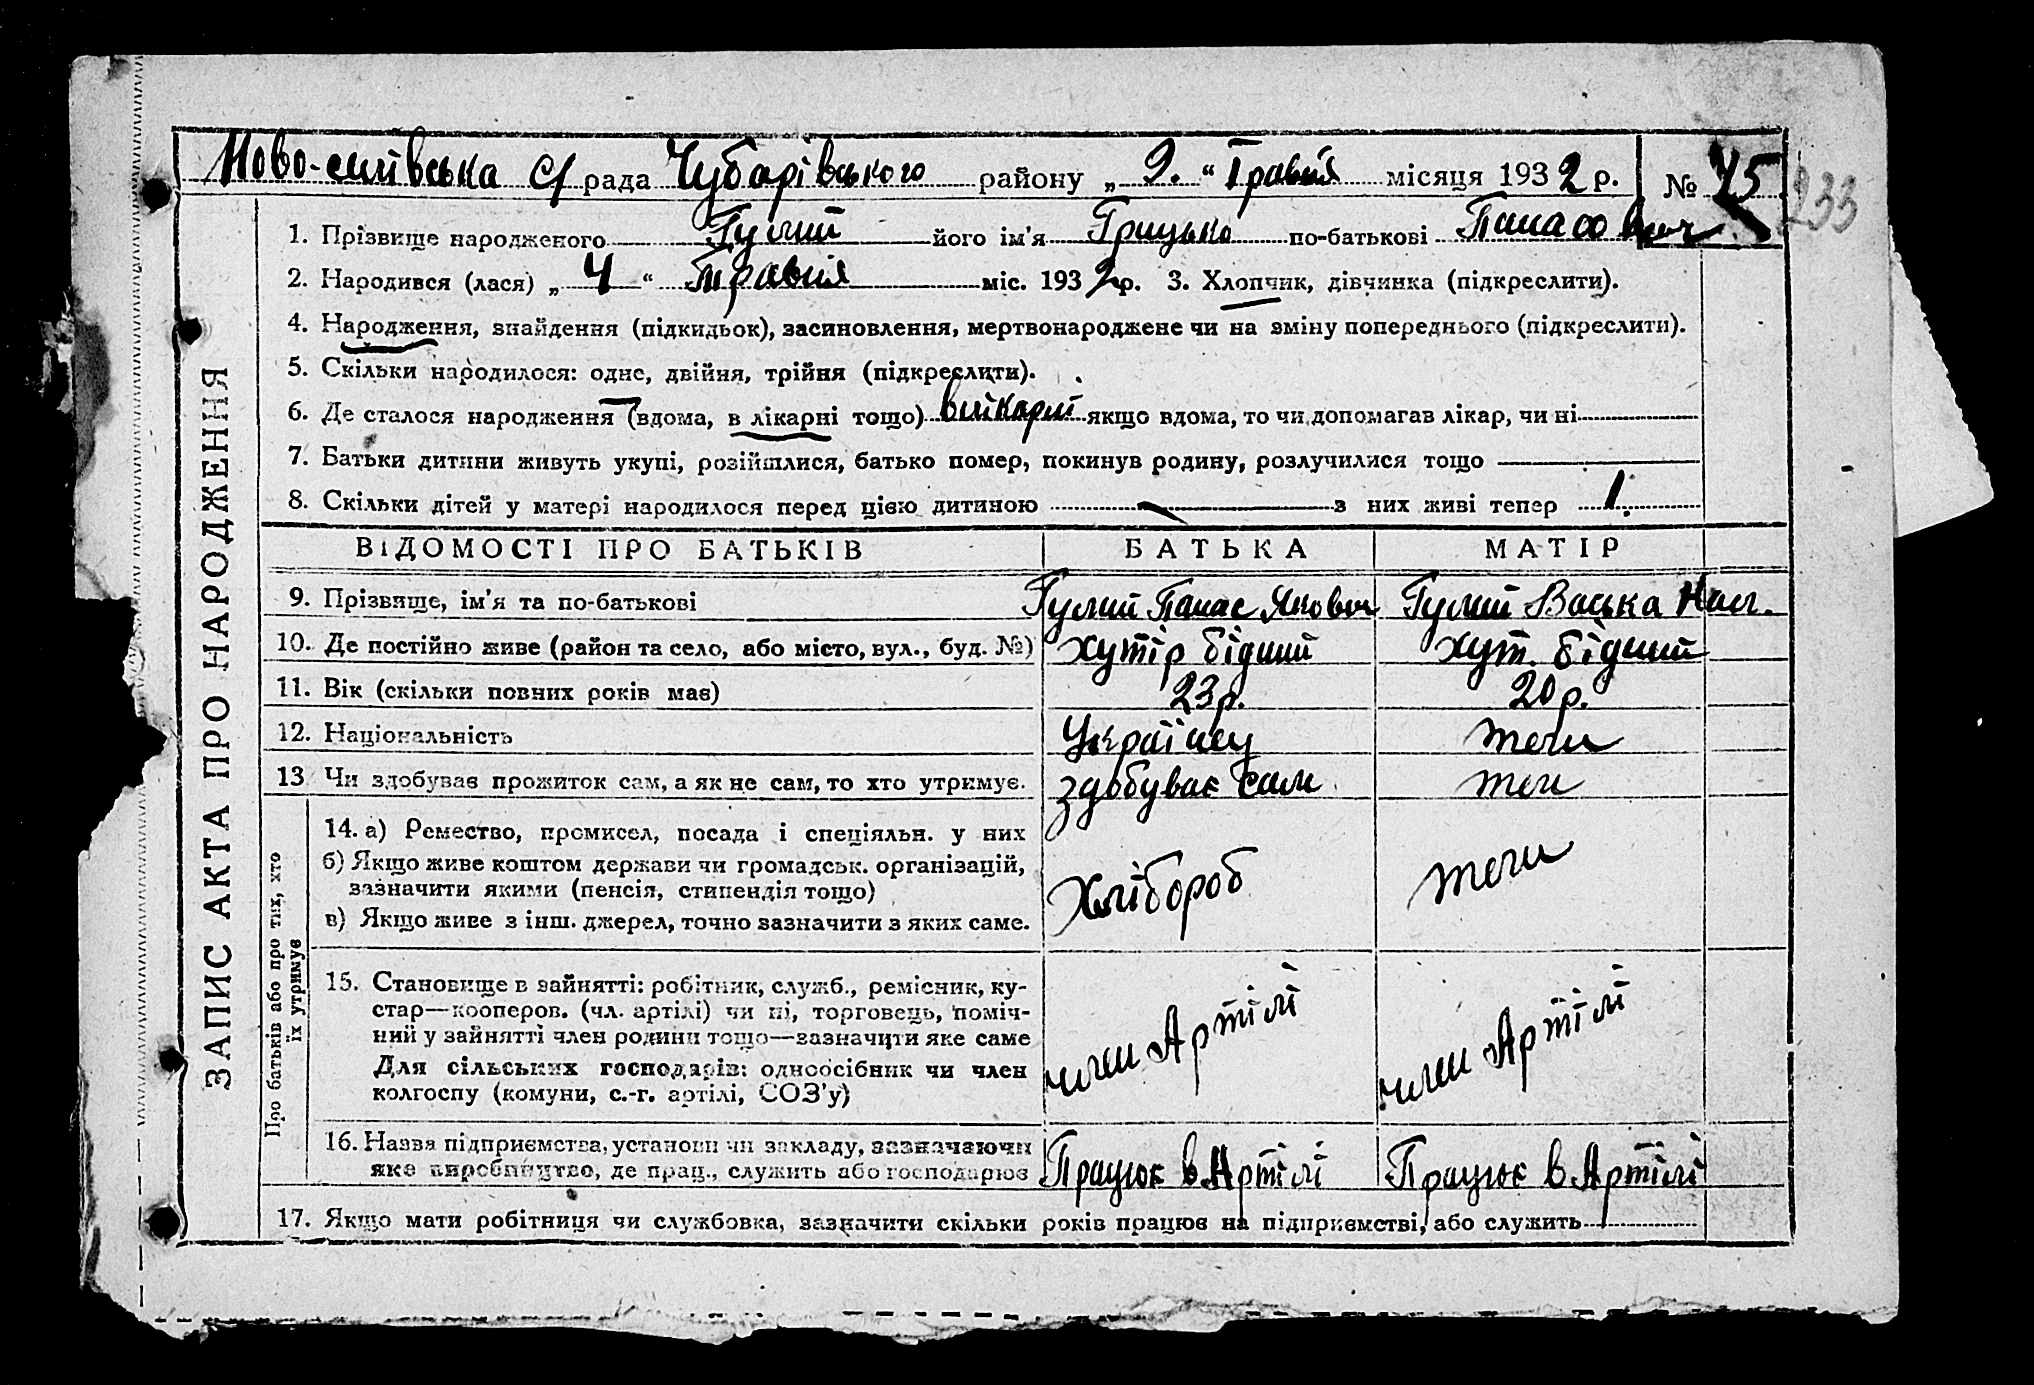 Ново-силівська с/рада Чубарівського району „ 9. “ Травня місяця 1932 р. № 45
233
1. Прізвище народженого Гулий його ім'я Грицько по-батькові Панасович
2. Народився (лася) „ 4 “ Травня міс. 1932 р. 3. Хлопчик, дівчинка (підкреслити).
4. Народження, знайдення (підкидьок), засиновлення, мертвонароджене чи на зміну попереднього (підкреслити).
5. Скільки народилося: одне, двійня, трійня (підкреслити).
6. Де сталося народження (вдома, в лікарні тощо) якщо вдома, то чи допомагав лікар, чи ні
7. Батьки дитини живуть укупі, розійшлися, батько помер, покинув родину, розлучилися тощо
8. Скільки дітей у матері народилося перед цією дитиною — з них живі тепер 1.
ЗАПИС АКТА ПРО НАРОДЖЕННЯ
ВІДОМОСТІ ПРО БАТЬКІВ БАТЬКА МАТІР
9. Прізвище, ім'я та по-батькові Гулий Панас Якович Гулий Васька
10. Де постійно живе (район та село, або місто, вул., буд. №) хутір бідний хут. бідний
11. Вік (скільки повних років має) 23р. 20р.
12. Національність Україн
13 Чи здобував прожиток сам, а як не сам, то хто утримує. здобуває сам
Про батьків або про тих, хто
їх утримує
14. а) Ремество, промисел, посада і спеціяльн. у них
б) Якщо живе коштом держави чи громадськ. організацій,
зазначити якими (пенсія, стипендія тощо)
в) Якщо живе з інш. джерел, точно зазначити з яких саме.
Хлібороб
15. Становище в зайнятті: робітник, служб., ремісник, ку-
стар—кооперов. (чл. артілі) чи ні, торговець, поміч-
ний у зайнятті член родини тощо—зазначити яке саме
Для сільських господарів: одноосібник чи член
колгоспу (комуни, с.-г. артілі, СОЗ'у)
член Артілі член Артілі
16. Назва підприємства, установи чи закладу, зазначаючи
яке виробництво, де прац., служить або господарює
Працює в Артілі Працює в Артілі
17. Якщо мати робітниця чи службовка, зазначити скільки років працює на підприємстві, або служить